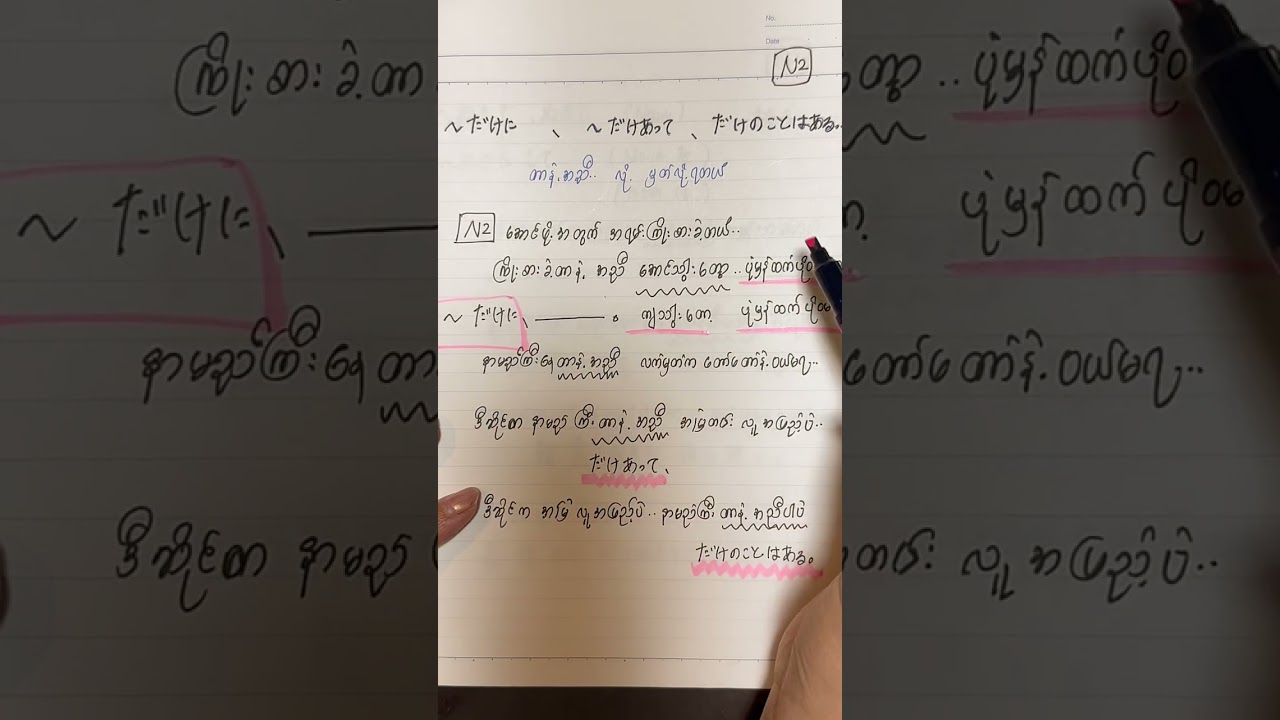 No.
Date
N2
~だけに 、 ~だけあって 、 だけのことはある。
တာနဲ့အညီ.. လို့ မှတ်လို့ရတယ်
N2 အောင်ဖို့အတွက် အရမ်းကြိုးစားခဲ့တယ်..
ကြိုးစားခဲ့တာနဲ့ အညီ အောင်သွားတော့.. ပုံမှန်ထက်ပိုဝ
~だけに、 ———。 ကျသွားတော့ ပုံမှန်ထက်ပိုဝမ
နာမည်ကြီးနေတာနဲ့အညီ လက်မှတ်က တော်တော်နဲ့ဝယ်မရ..
ဒီဆိုင်က နာမည်ကြီးတာနဲ့အညီ အမြဲတမ်း လူအပြည့်ပဲ..
だけあって、
ဒီဆိုင်က အမြဲလူအပြည့်ပဲ.. နာမည်ကြီးတာနဲ့အညီပါပဲ
だけのことはある。